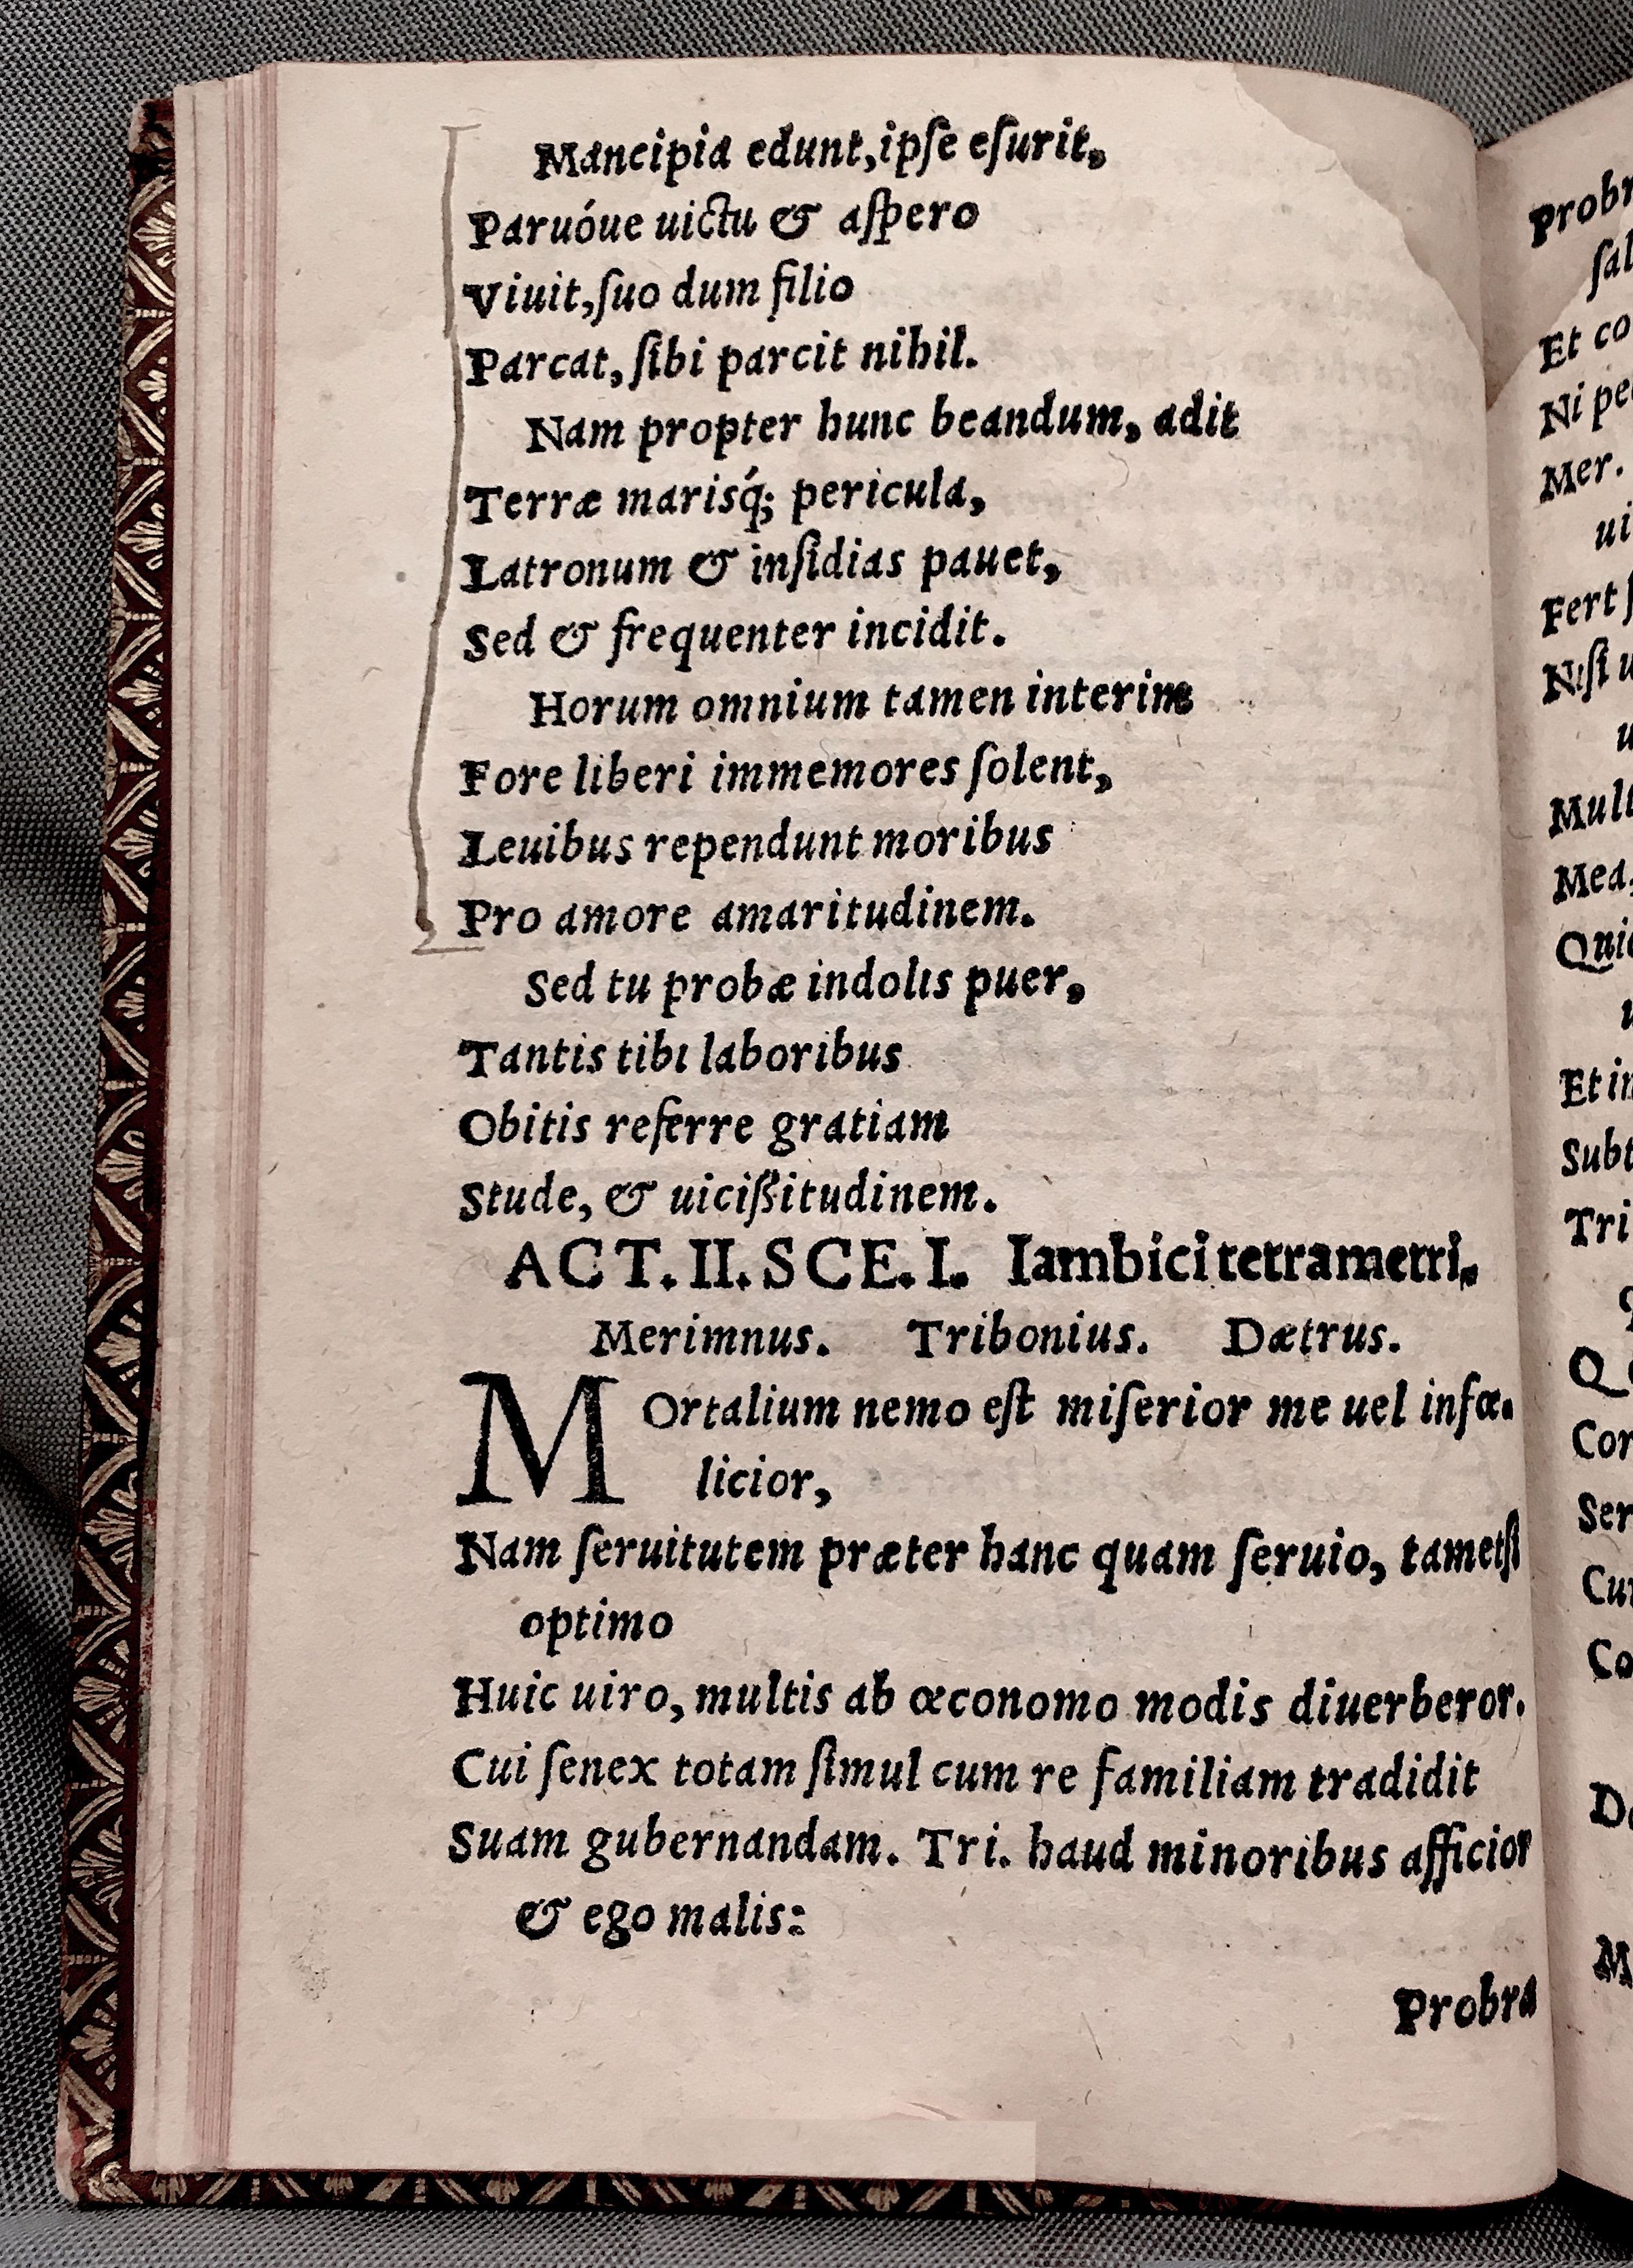 Mancipia edunt, ipſe eſurit,
Paruóue uictu & aſpero
Viuit, ſuo dum filio
Parcat, ſibi parcit nihil.
Nam propter hunc beandum, adit
Terræ marisq́; pericula,
Latronum & inſidias pauet,
Sed & frequenter incidit.
Horum omnium tamen interim
Fore liberi immemores ſolent,
Leuibus rependunt moribus
Pro amore amaritudinem.
Sed tu probæ indolis puer,
Tantis tibi laboribus
Obitis referre gratiam
Stude, & uiciſſitudinem.
ACT. II. SCE. I. Iambici tetrametri.
Merimnus. Tribonius. Dætrus.
MOrtalium nemo eſt miſerior me uel infœ-
licior,
Nam ſeruitutem præter hanc quam ſeruio, tametſi
optimo
Huic uiro, multis ab œconomo modis diuerberor.
Cui ſenex totam ſimul cum re familiam tradidit
Suam gubernandam. Tri. haud minoribus afficior
& ego malis:
Probra
Et co
Ni pe
Mer.
ui
Fert
Niſi u
u
Mea,
Et in
Tri
Cor
Ser
Co
M